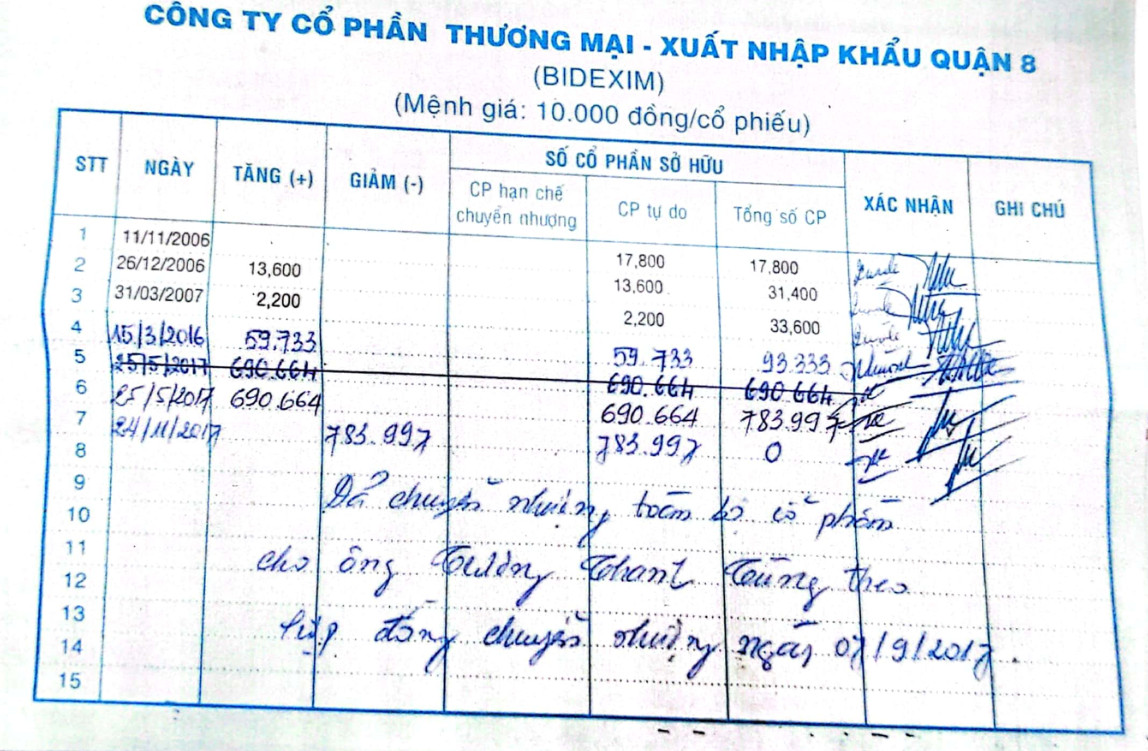 CÔNG TY CỔ PHẦN THƯƠNG MẠI - XUẤT NHẬP KHẨU QUẬN 8
(BIDEXIM)
(Mệnh giá: 10.000 đồng/cổ phiếu)
STT NGÀY TĂNG (+) GIẢM (-) SỐ CỔ PHẦN SỞ HỮU XÁC NHẬN GHI CHÚ
CP hạn chế chuyển nhượng CP tự do Tổng số CP
1 11/11/2006 17,800 17,800
2 26/12/2006 13,600 13,600 31,400
3 31/03/2007 2,200 2,200 33,600
4 15/3/2016 59.733 59.733 93.333
5 25/5/2017 690.664 690.664 690.664
6 25/5/2017 690.664 690.664 783.997
7 24/11/2017 783.997 783.997 0
8
9
10 Đã chuyển nhượng toàn bộ cổ phần
11
12 cho ông Trường Thanh Tùng theo
13
14 hợp đồng chuyển nhượng ngày 07/9/2017.
15